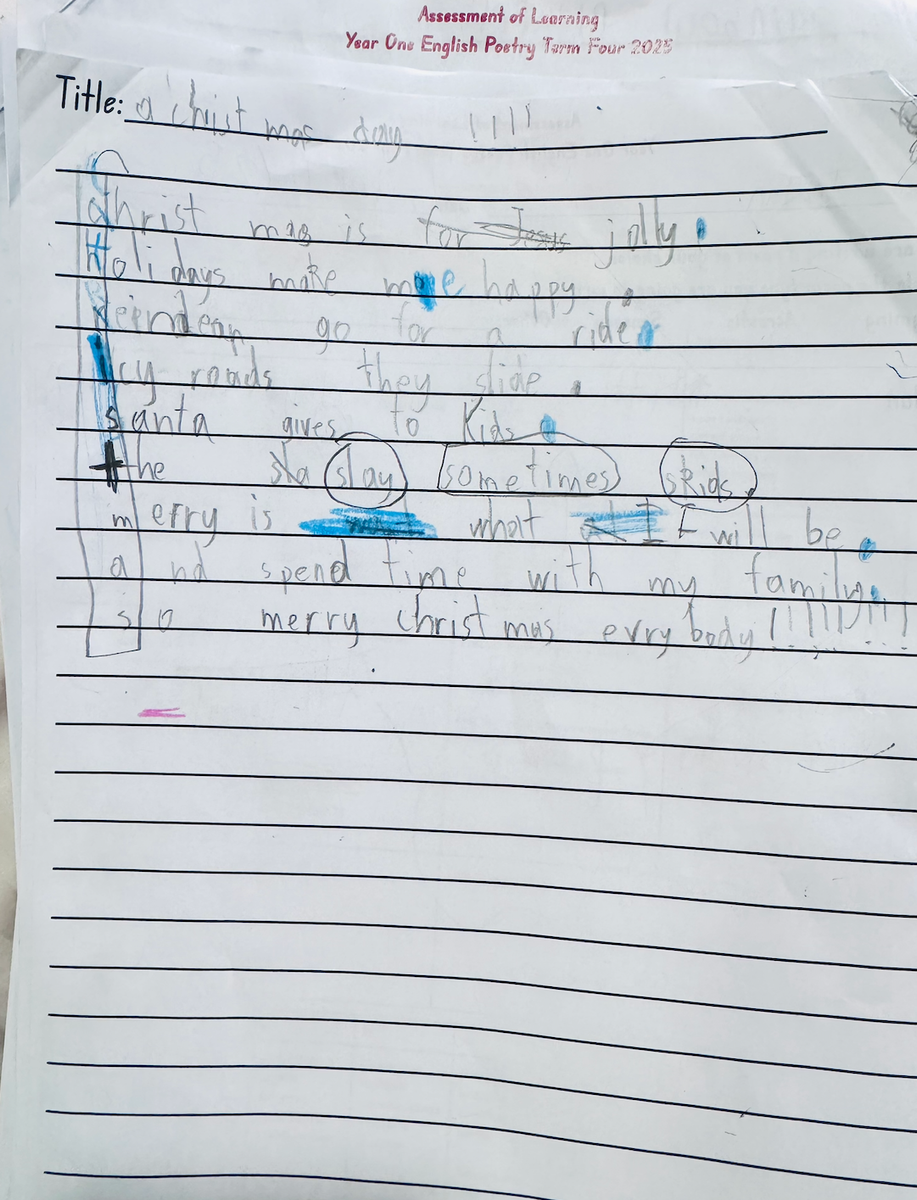 Assessment of Learning
Year One English Poetry Term Four 2025
Title: a christ mas day !!!!
Christ mas is for Jesus jolly.
Holidays make me happy.
Reindear go for a ride.
Icy roads they slide.
santa gives to Kids.
the sla slay sometimes skids.
merry is what I will be.
and spend time with my family.
so merry christ mas evry body!!!!!!!!